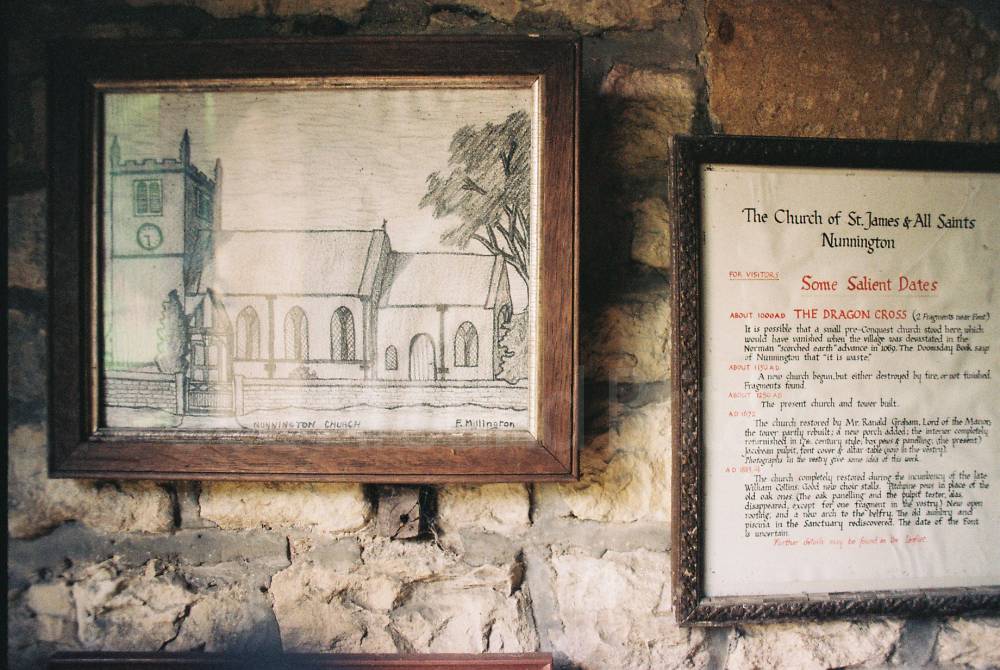 NUNNINGTON CHURCH
F. Millington
The Church of St. James & All Saints
Nunnington
FOR VISITORS
Some Salient Dates
ABOUT 1000AD THE DRAGON CROSS (2 Fragments near Font)
It is possible that a small pre-Conquest church stood here, which
would have vanished when the village was devastated in the
Norman "scorched earth" advance in 1069. The Doomsday Book says
of Nunnington that "it is waste"
ABOUT 1150 AD
A new church begun, but either destroyed by fire, or not finished.
Fragments found.
ABOUT 1250 AD
The present church and tower built.
AD 1672
The church restored by Mr. Ranald Graham, Lord of the Manor;
the tower partly rebuilt; a new porch added; the interior completely
refurnished in 17th. century style; box pews & panelling; (the present)
Jacobean pulpit, font cover & altar-table (now in the vestry).
Photographs in the vestry give some idea of this work.
AD
The church completely restored during the incumbency of the late
William Collins. Good new choir stalls. Pitchpine pews in place of the
old oak ones. (The oak panelling and the pulpit tester, alas,
disappeared, except for one fragment in the vestry.) New open
roofing, and a new arch to the belfry. The old aumbry and
piscina in the Sanctuary rediscovered. The date of the Font
is uncertain.
Further details may be found in the leaflet.